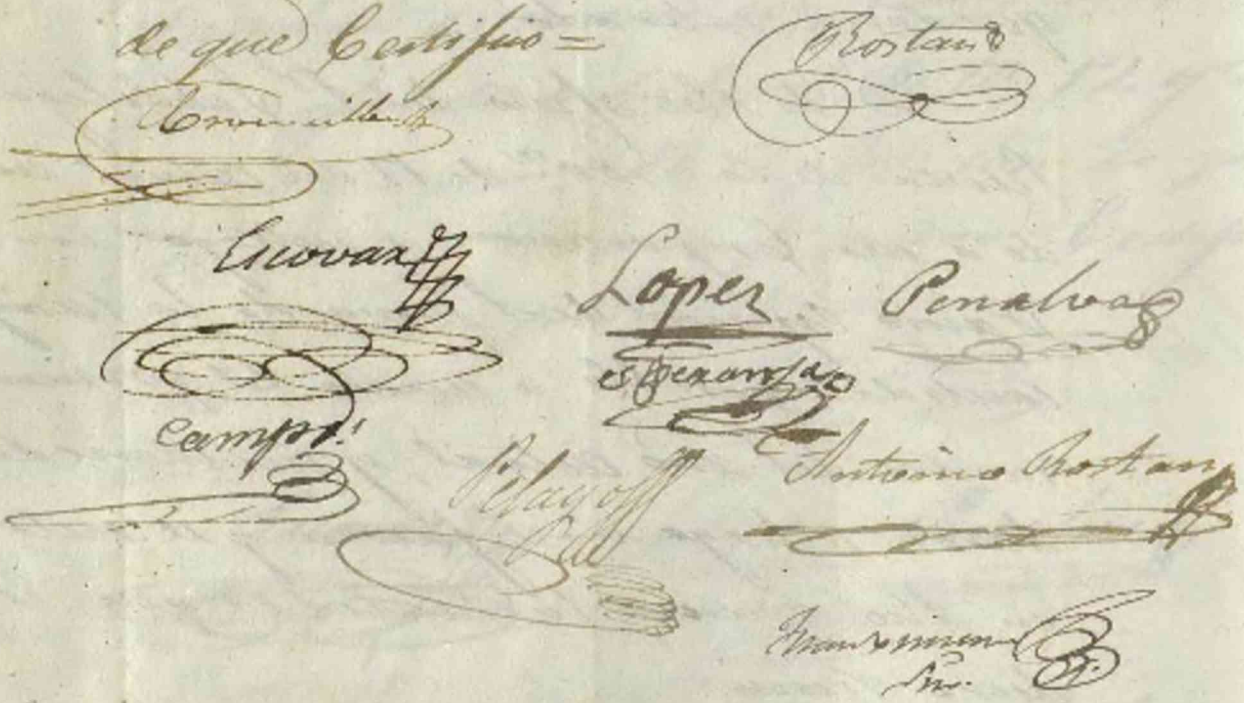 de que Certifico =
Rostan
Escovar
Lopez
Penalva
esperansa
Campos
Pelayo
Antonio Rostan